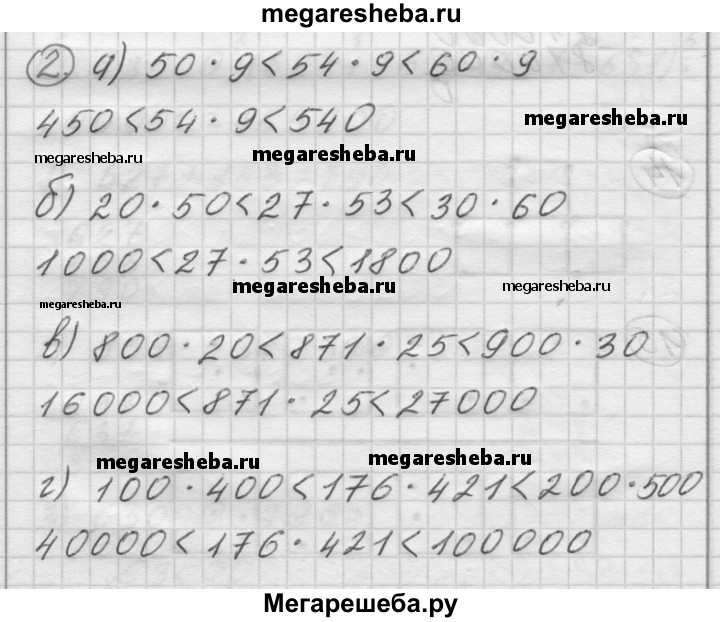 megaresheba.ru
2. а) 50 · 9 < 54 · 9 < 60 · 9
450 < 54 · 9 < 540
megaresheba.ru
megaresheba.ru
megaresheba.ru
б) 20 · 50 < 27 · 53 < 30 · 60
1000 < 27 · 53 < 1800
megaresheba.ru
megaresheba.ru
megaresheba.ru
в) 800 · 20 < 871 · 25 < 900 · 30
16000 < 871 · 25 < 27000
megaresheba.ru
megaresheba.ru
г) 100 · 400 < 176 · 421 < 200 · 500
40000 < 176 · 421 < 100000
Мегарешеба.ру